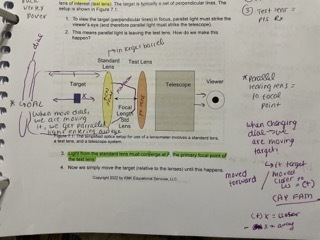 lens of interest (test lens). The target is typically a set of perpendicular lines. The
setup is shown in Figure 7.1.
1. To view the target (perpendicular lines) in focus, parallel light must strike the
viewer's eye (and therefore parallel light must strike the telescope).
2. This means parallel light is leaving the test lens. How do we make this
happen?
Standard
Lens
Test Lens
Target
Telescope
Viewer
Focal
Length
Std
Lens
x
* GOAL
When moving dial,
we are moving
it, we get parallel
light entering
Figure 7.1. The simplified optical setup for use of a lensometer involves a standard lens, a test
lens, and a telescope system.
3. Light from the standard lens must converge at F, the primary focal point of
the test lens.
4. Now we simply move the target (relative to the lenses) until this happens.
Copyright 2022 by KMK Educational Services, LLC.
dial
power
③ Test lens =
* parallel
leaving lens =
focal
point
when changing
dial → we
are moving
target.
Left target
moved
closer to
us = (+)
moved
forward
CAP FAM
(+) = closer